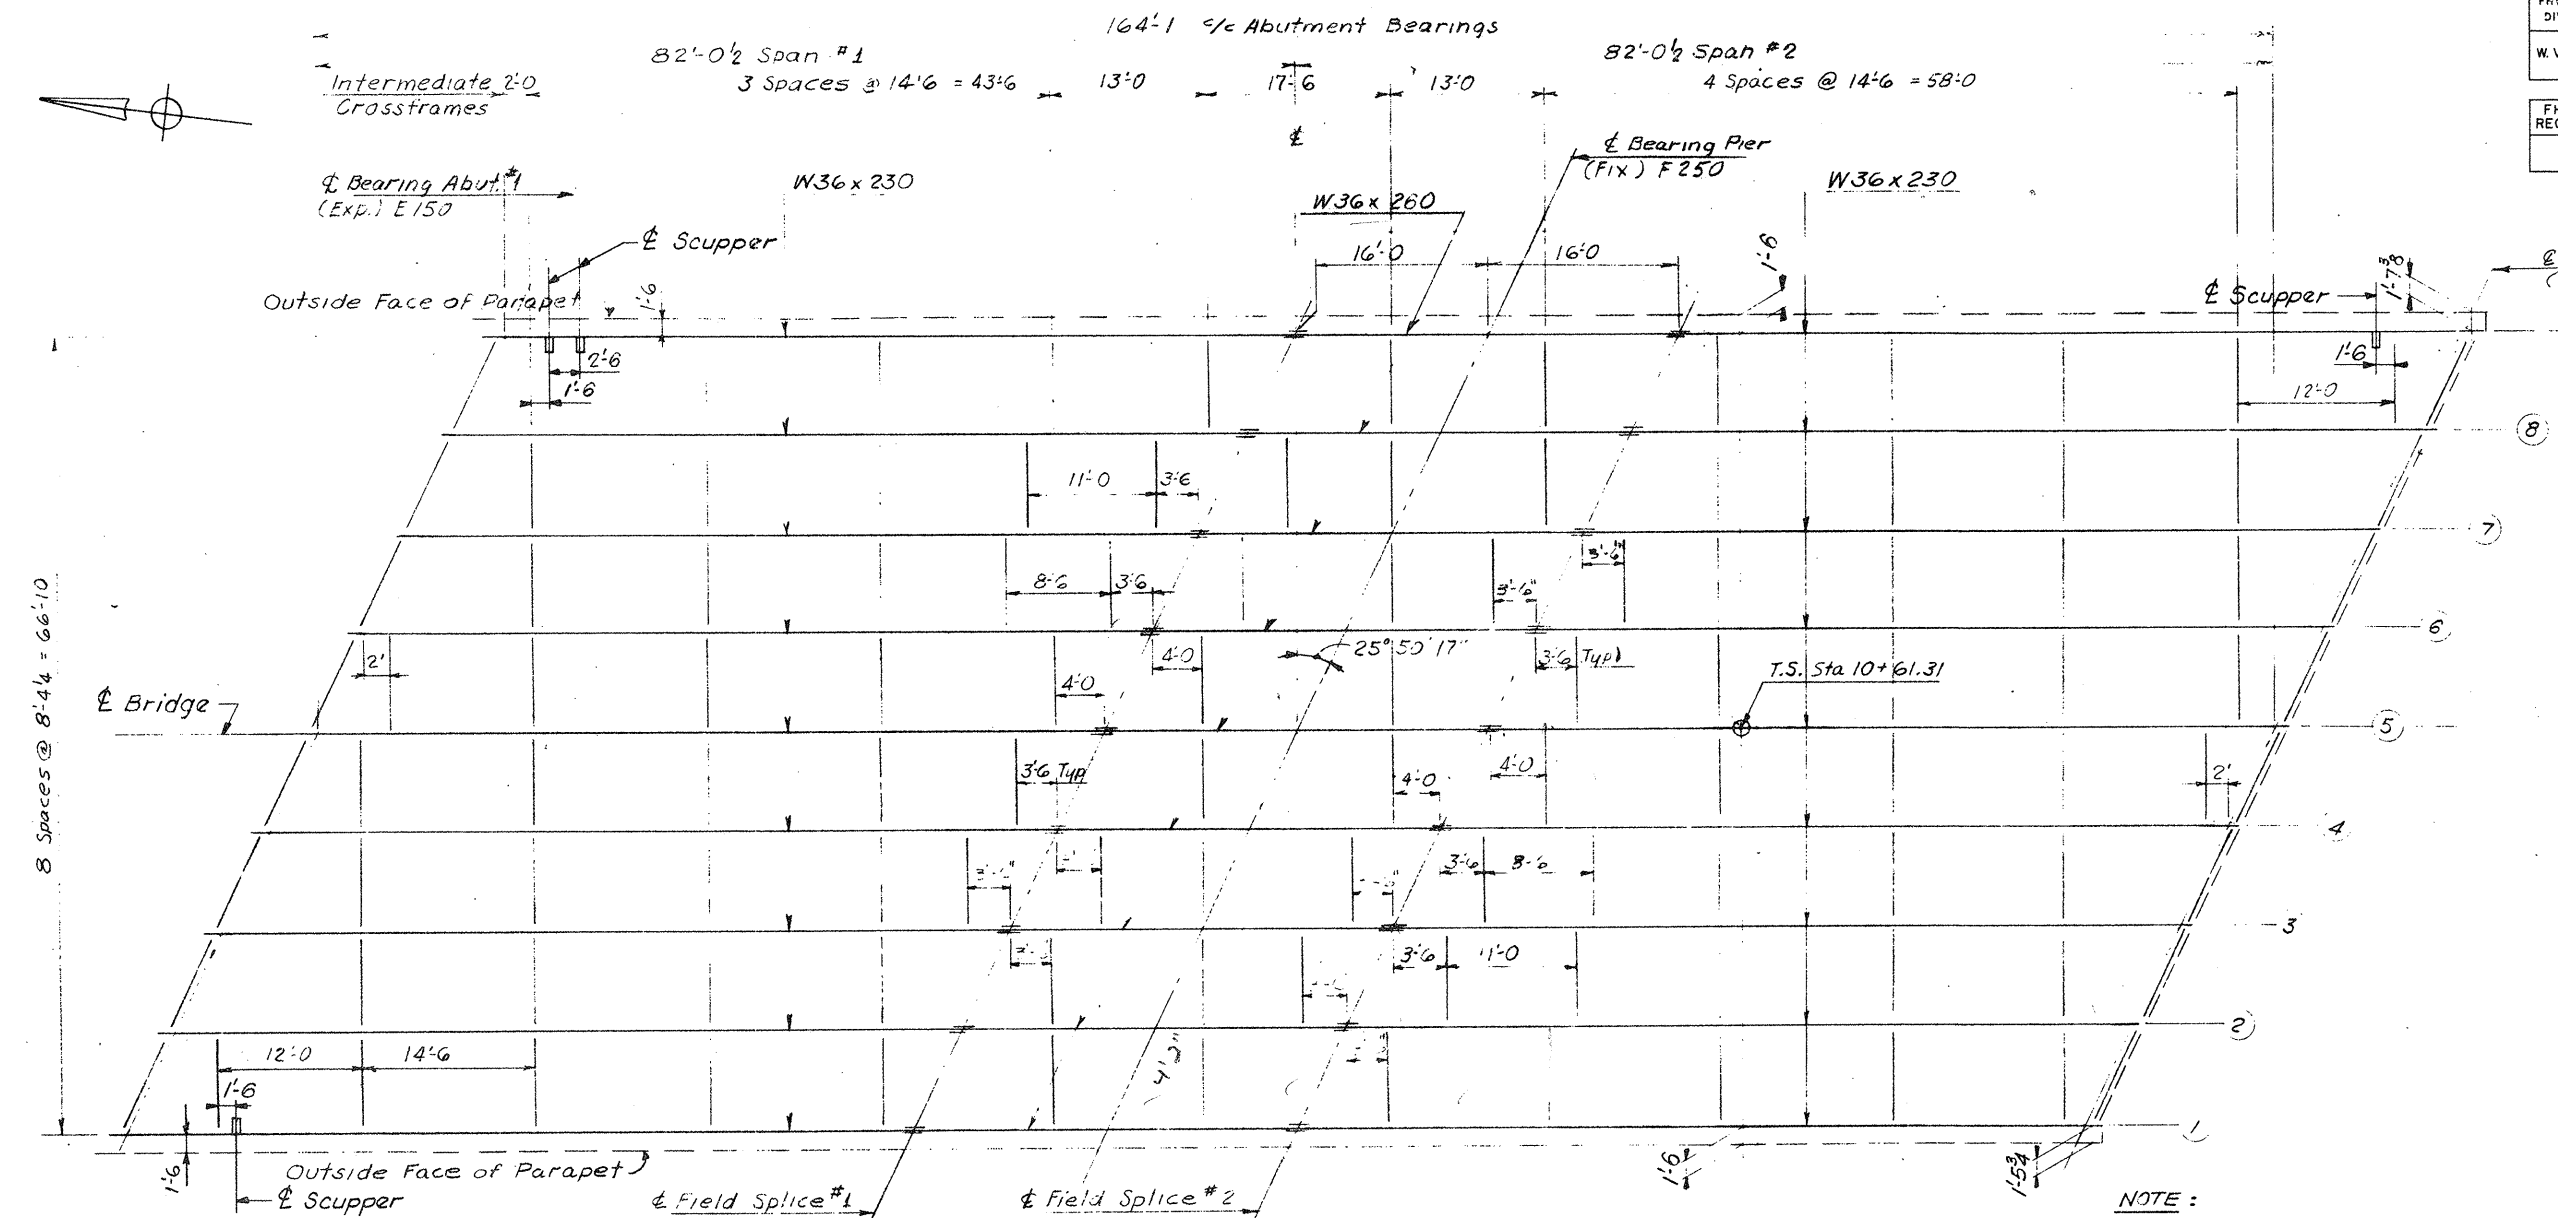 164'-1 c/c Abutment Bearings
82'-0½ Span #1
82'-0½ Span #2
Intermediate 2'-0
Crossframes
3 Spaces @ 14'6 = 43'-6
13'-0
17'-6
13'-0
4 Spaces @ 14'-6 = 58'-0
W. V
℄
℄ Bearing Pier
(Fix) F 250
℄ Bearing Abut. #1
(Exp.) E 150
W36 x 230
W36 x 260
W36 x 230
℄ Scupper
16'-0
16'-0
1'-6
1'-7⅜
Outside Face of Parapet
1'-6
℄ Scupper
2'-6
1'-6
1'-6
12'-0
8
11'-0
3'-6
7
3'-6"
8'-6
3'-6
3'-6"
6
25° 50' 17"
2'
4'-0
3'-6 Typ
T.S. Sta 10+61.31
4'-0
℄ Bridge
5
8 Spaces @ 8'-4¼ = 66'-10
3'-6 Typ
4'-0
4'-0
2'
4
3'-6
8'-6
3
3'-6
11'-0
2
12'-0
14'-6
4'2"
1'-6
1
1'-6
Outside Face of Parapet
1'-6
1'-5¾
℄ Scupper
℄ Field Splice #1
℄ Field Splice #2
NOTE :